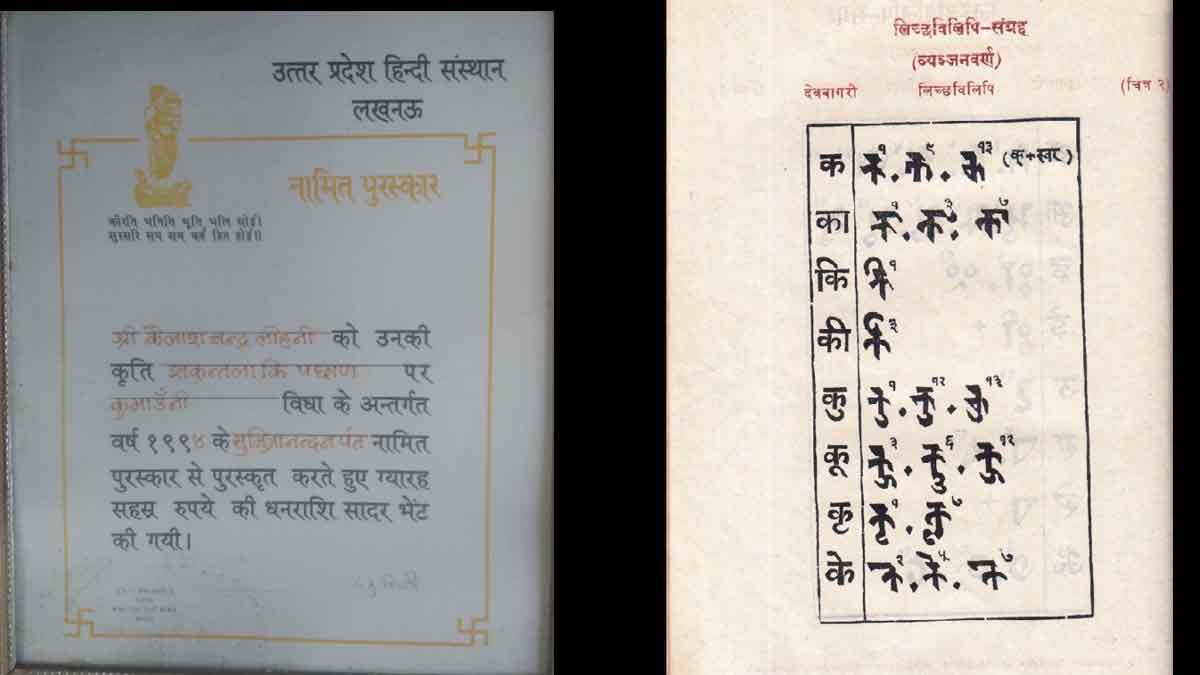 उत्तर प्रदेश हिन्दी संस्थान
लखनऊ
नामित पुरस्कार
कीरति भनिति भूति भलि सोई।
सुरसरि सम सब कहँ हित होई॥
श्री कैलाश चन्द्र लोहनी को उनकी
कृति शकुन्तला कि पछ्याण पर
कुमाउँनी विधा के अन्तर्गत
वर्ष १९९४ के सुमित्रानन्दन पंत नामित
पुरस्कार से पुरस्कृत करते हुए ग्यारह
सहस्र रुपये की धनराशि सादर भेंट
की गयी।
लिच्छविलिपि-संग्रह
(व्यञ्जनवर्ण)
देवनागरी लिच्छविलिपि (चित्र २)
क १ ९ १३ (क्+स्वर)
का १ ३ ७
कि १
की ३
कु १ १२ १३
कू ३ ६ १२
कृ १ ७
के २ ५ ७